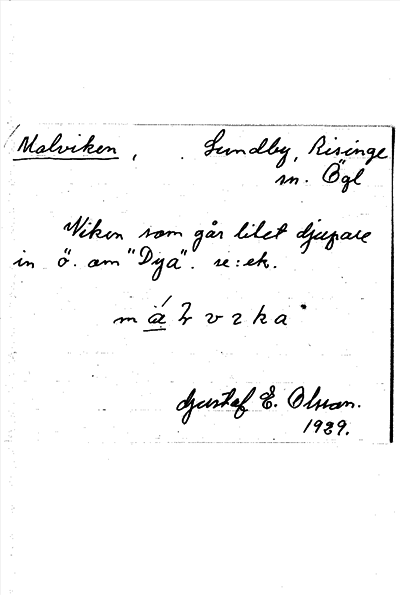 Malviken, Lundby, Risinge
sn. Ögl
Viken som går litet djupare
in ö. om "Dya". se: ek.
Gustaf E. Olsson.
1929.